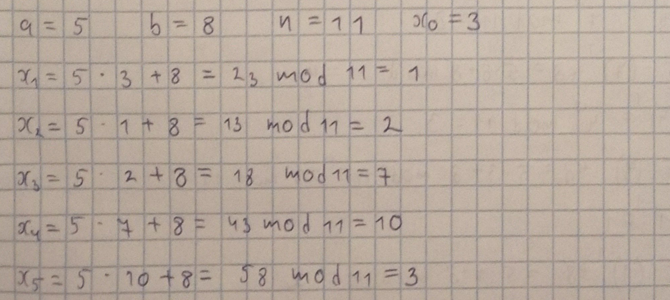 a = 5 b = 8 n = 11 x₀ = 3
x₁ = 5 · 3 + 8 = 23 mod 11 = 1
x₂ = 5 · 1 + 8 = 13 mod 11 = 2
x₃ = 5 · 2 + 8 = 18 mod 11 = 7
x₄ = 5 · 7 + 8 = 43 mod 11 = 10
x₅ = 5 · 10 + 8 = 58 mod 11 = 3